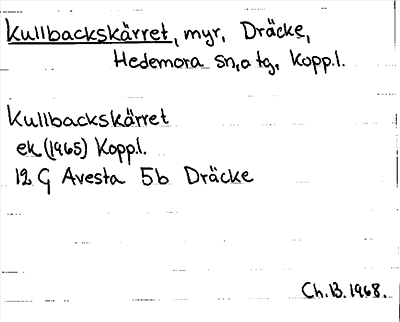 Kullbackskärret, myr, Dräcke,
Hedemora sn, a tg, Koppl.
Kullbackskärret
ek (1965) Koppl.
12 G Avesta 5b Dräcke
Ch.B. 1968.